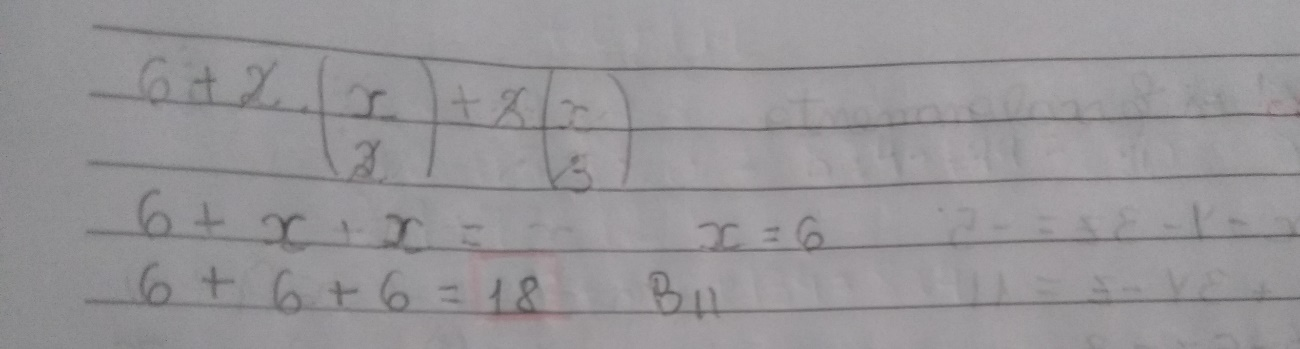 6 + 2 (x/2) + 3 (x/3)
6 + x + x = x = 6
6 + 6 + 6 = 18 B//